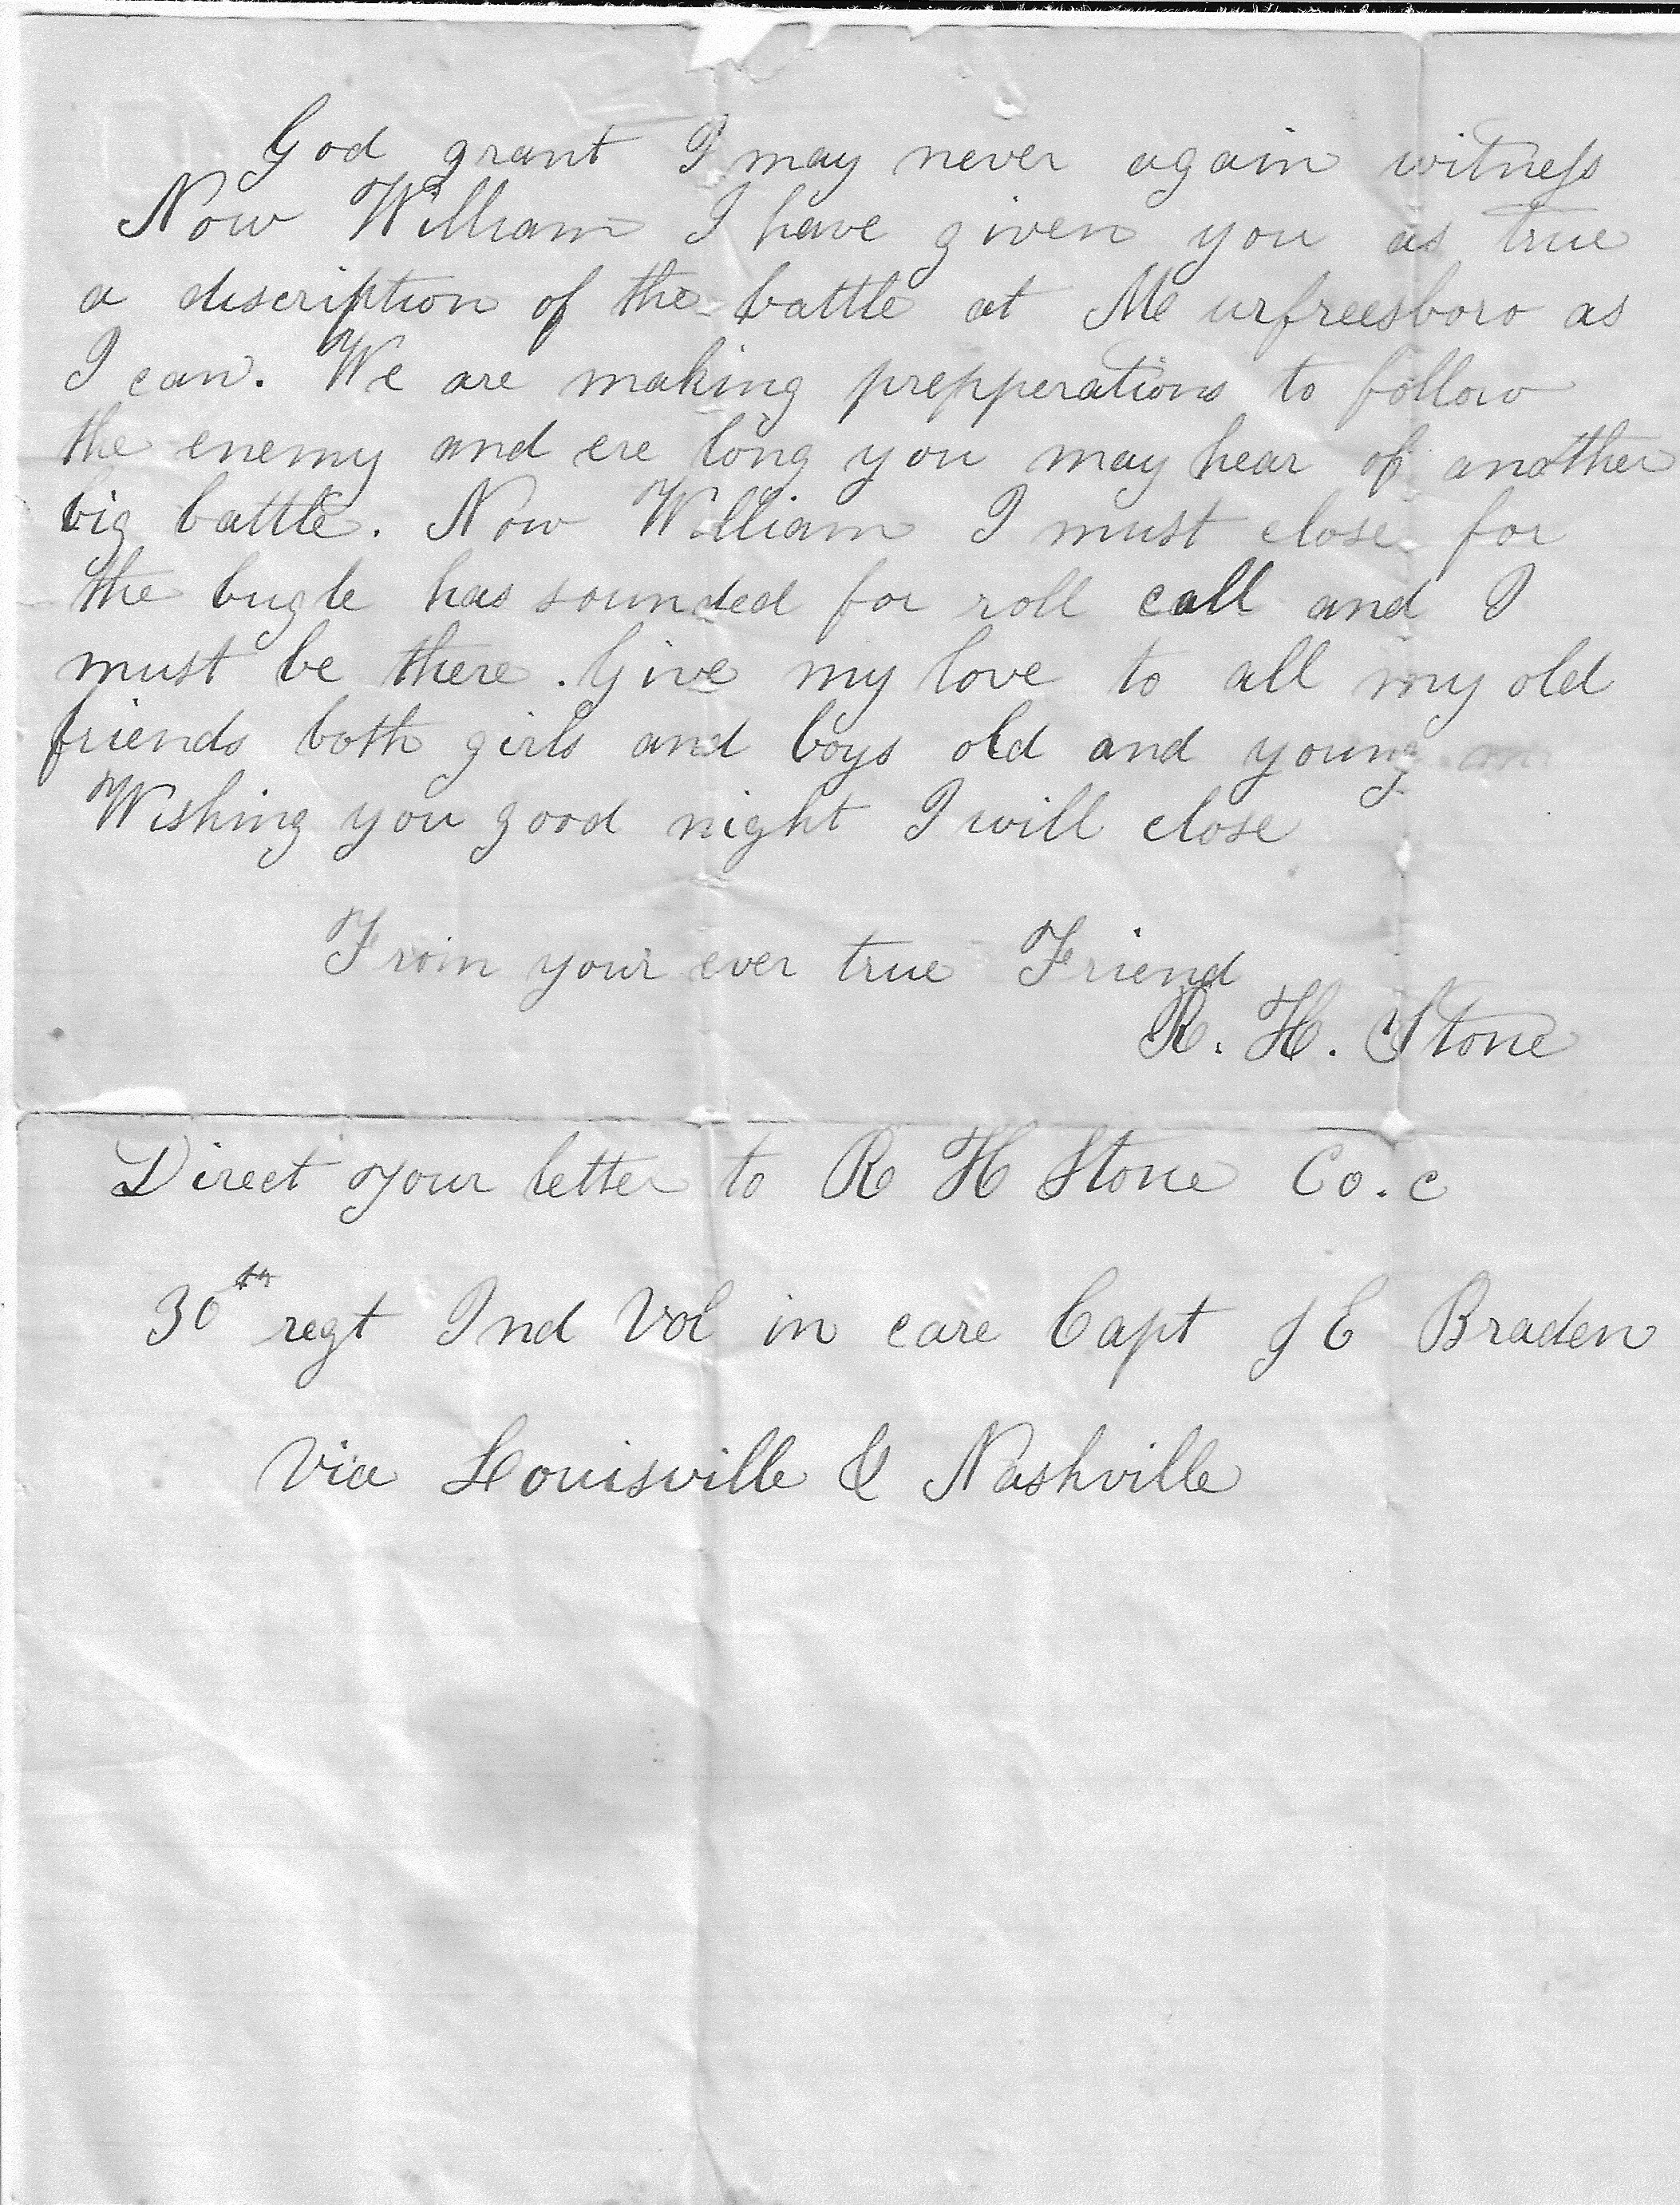 God grant I may never again witness
Now William I have given you as true
a discription of the battle at Me urfreesboro as
I can. We are making prepperations to follow
the enemy and ere long you may hear of another
big battle. Now William I must close for
the bugle has sounded for roll call and I
must be there. Give my love to all my old
friends both girls and boys old and young
Wishing you good night I will close
From your ever true Friend
R. H. Stone
Direct your letter to R H Stone Co. c
30th regt Ind Vol in care Capt J E Braden
Via Louisville & Nashville